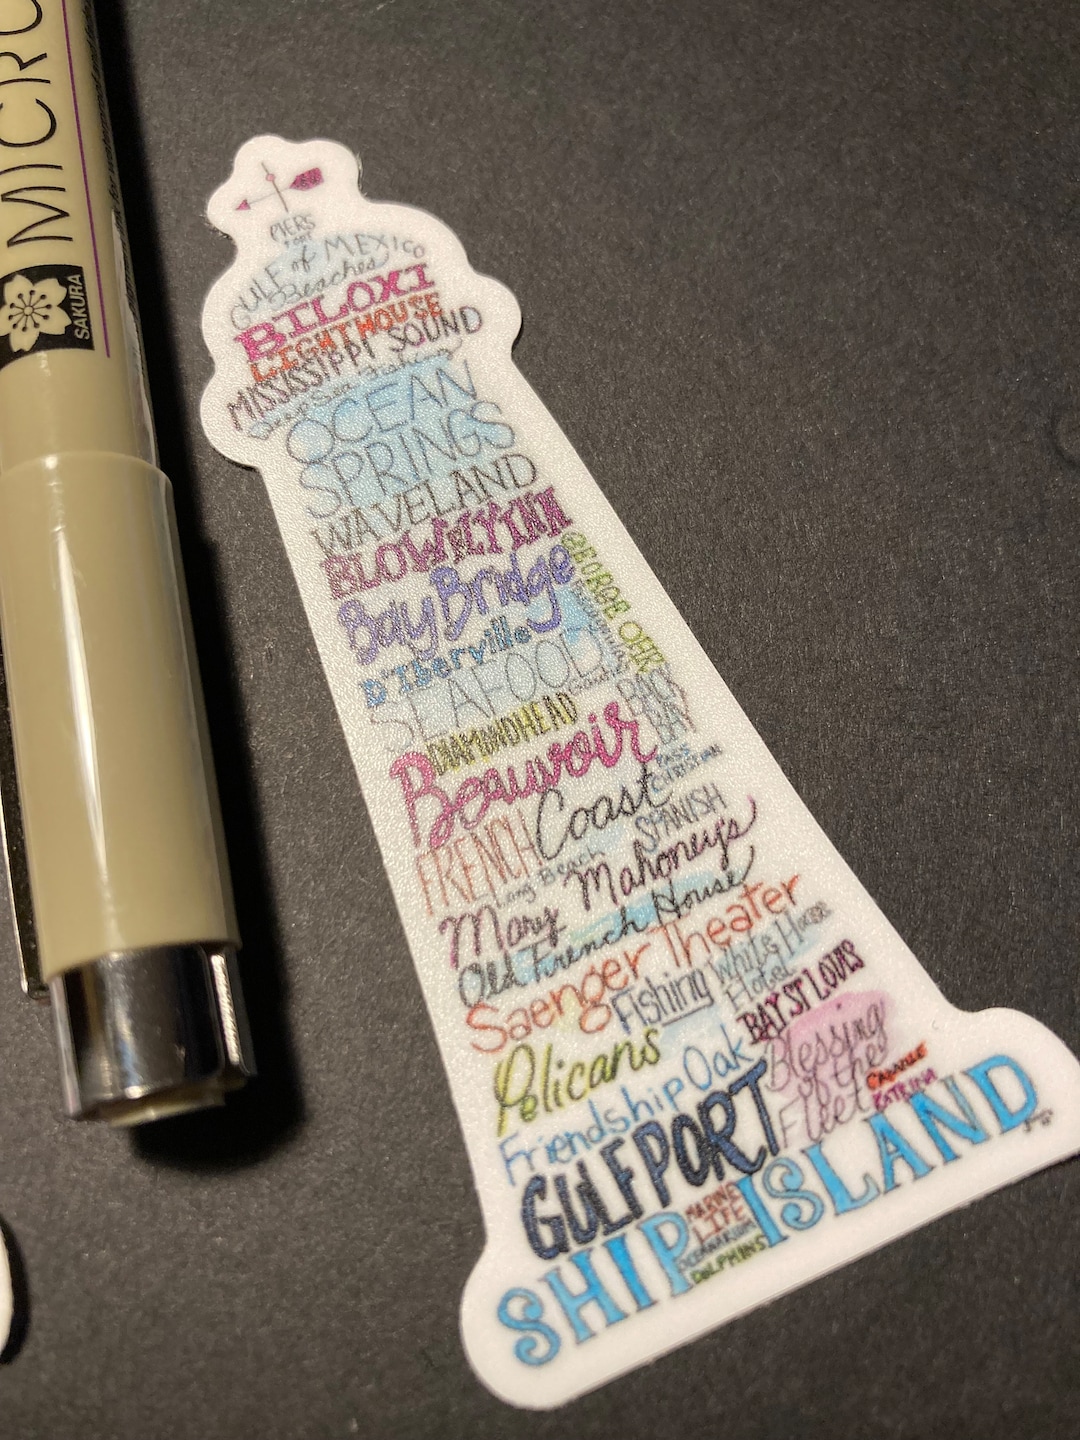 MICRO
SAKURA
PIERS
GULF of MEXICO
Beaches
BILOXI
LIGHTHOUSE
MISSISSIPPI SOUND
Deep Sea Fishing
OCEAN
SPRINGS
WAVELAND
BLOWFLY INN
Bay Bridge
GEORGE OHR
D'Iberville
SEAFOOD
BACK
BAY
DIAMONDHEAD
Beauvoir
PASS
CHRISTIAN
Coast
FRENCH
SPANISH
Long Beach
Mary Mahoney's
Old French House
Saenger Theater
Fishing
White House
Hotel
BAY ST LOUIS
Pelicans
Friendship Oak
Blessing
of the
Fleet
CAMILLE
KATRINA
GULFPORT
SHIP ISLAND
MARINE
LIFE
OCEANARIUM
DOLPHINS